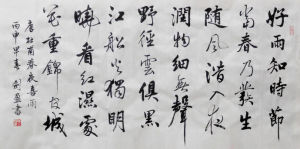 好雨知時節
當春乃發生
随風潜入夜
潤物細無聲
野徑雲俱黑
江船火獨明
曉看紅濕處
花重錦官城
唐杜甫春夜喜雨
丙申早春